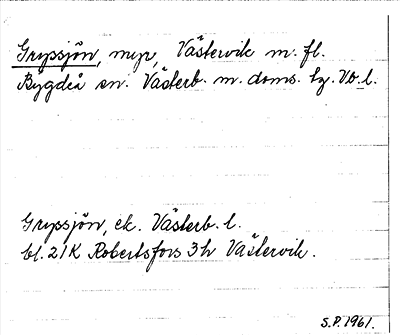 Grypsjön, myr, Västervik m. fl.
Bygdeå sn. Västerb. m. doms. tg. Vb. l.
Grypsjön, ek. Västerb. l.
bl. 21K Robertsfors 3h Västervik.
S.P. 1961.